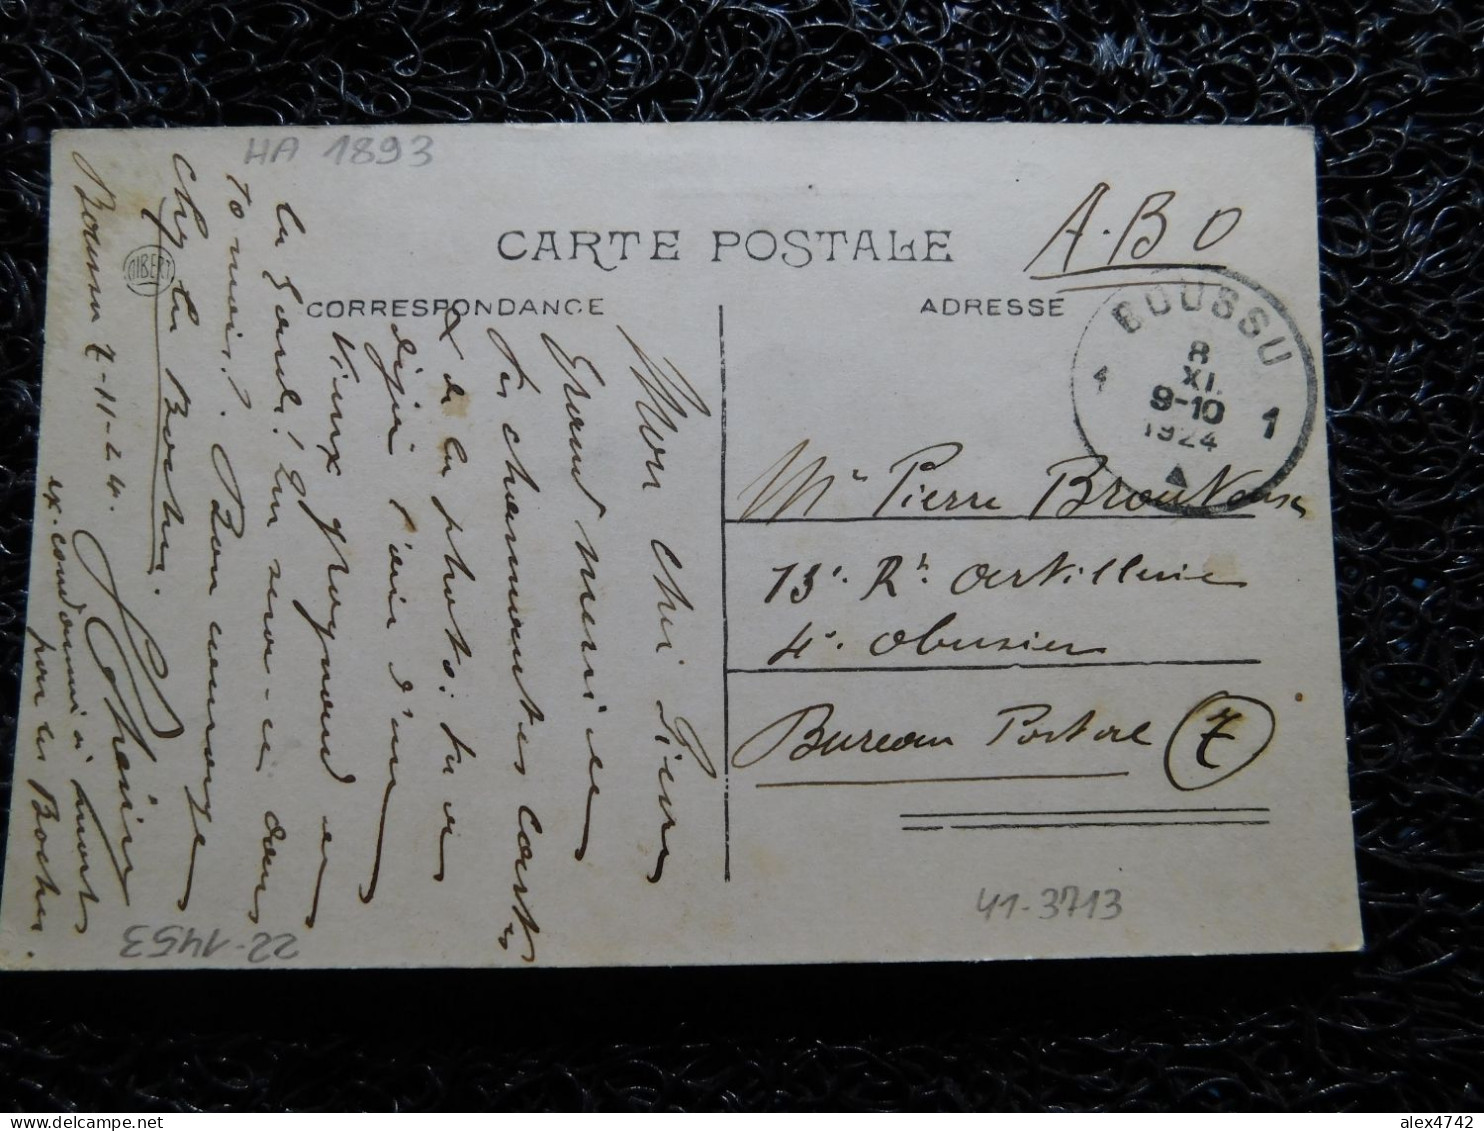 HA 1893
CARTE POSTALE
A.B O
CORRESPONDANCE
ADRESSE
BOUSSU
8
XI.
9-10
1924
1 1
Mr Pierre
13e. Rt. Artillerie
4e. Obusiers
Bureau Postal 7
41-3713
22-1453
Mon cher Pierre
Grand merci en
tes charmantes cartes
& de la photo: tu as
déjà l'air d'un
vieux grognard en
la Gaule! En sera-ce dans
10 mois? Bon courage
chez les Boches.
Boussu 7-11-24.
ex. condamné à mort
par les Boches.
ALBERT
alex4742